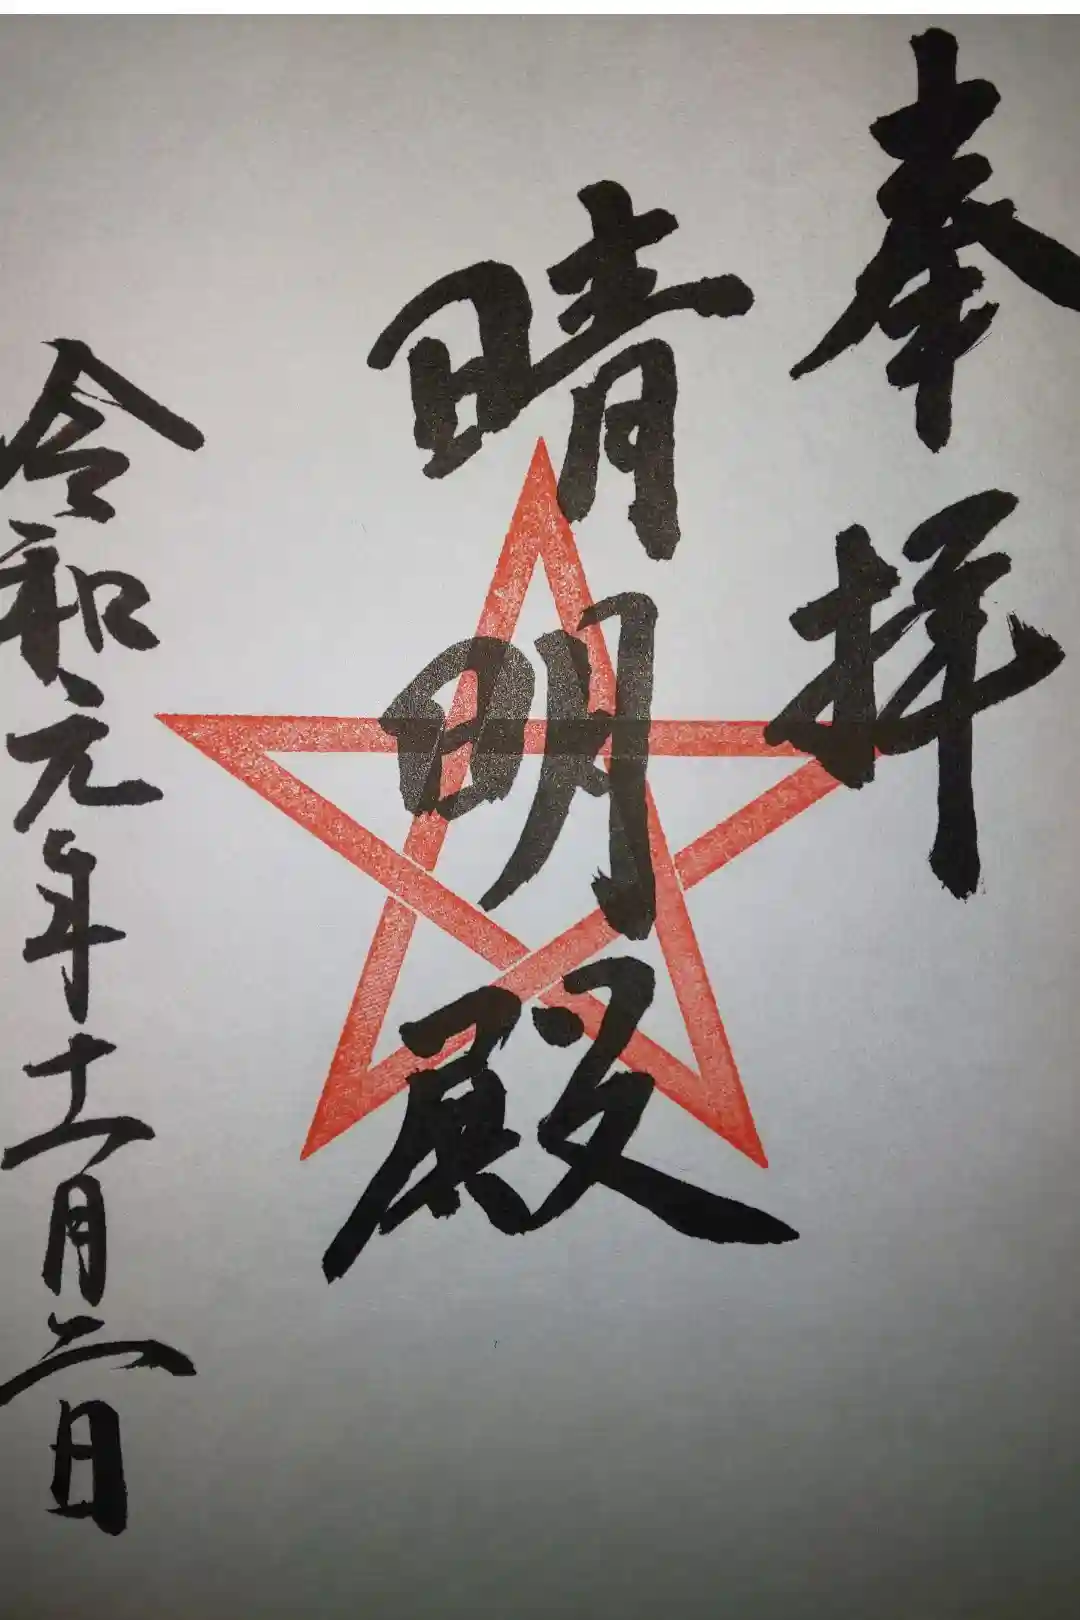 奉拝
晴明殿
令和元年十一月二日